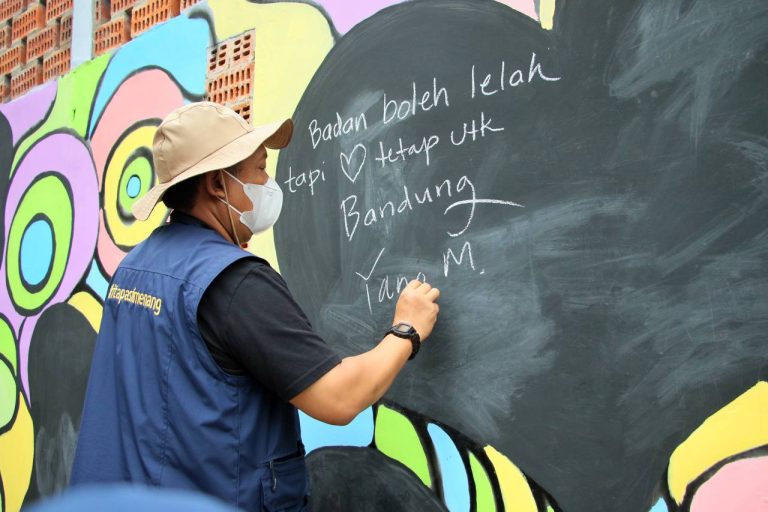 Badan boleh lelah
tapi ♡ tetap utk
Bandung
Yana M.
#itapastimenang